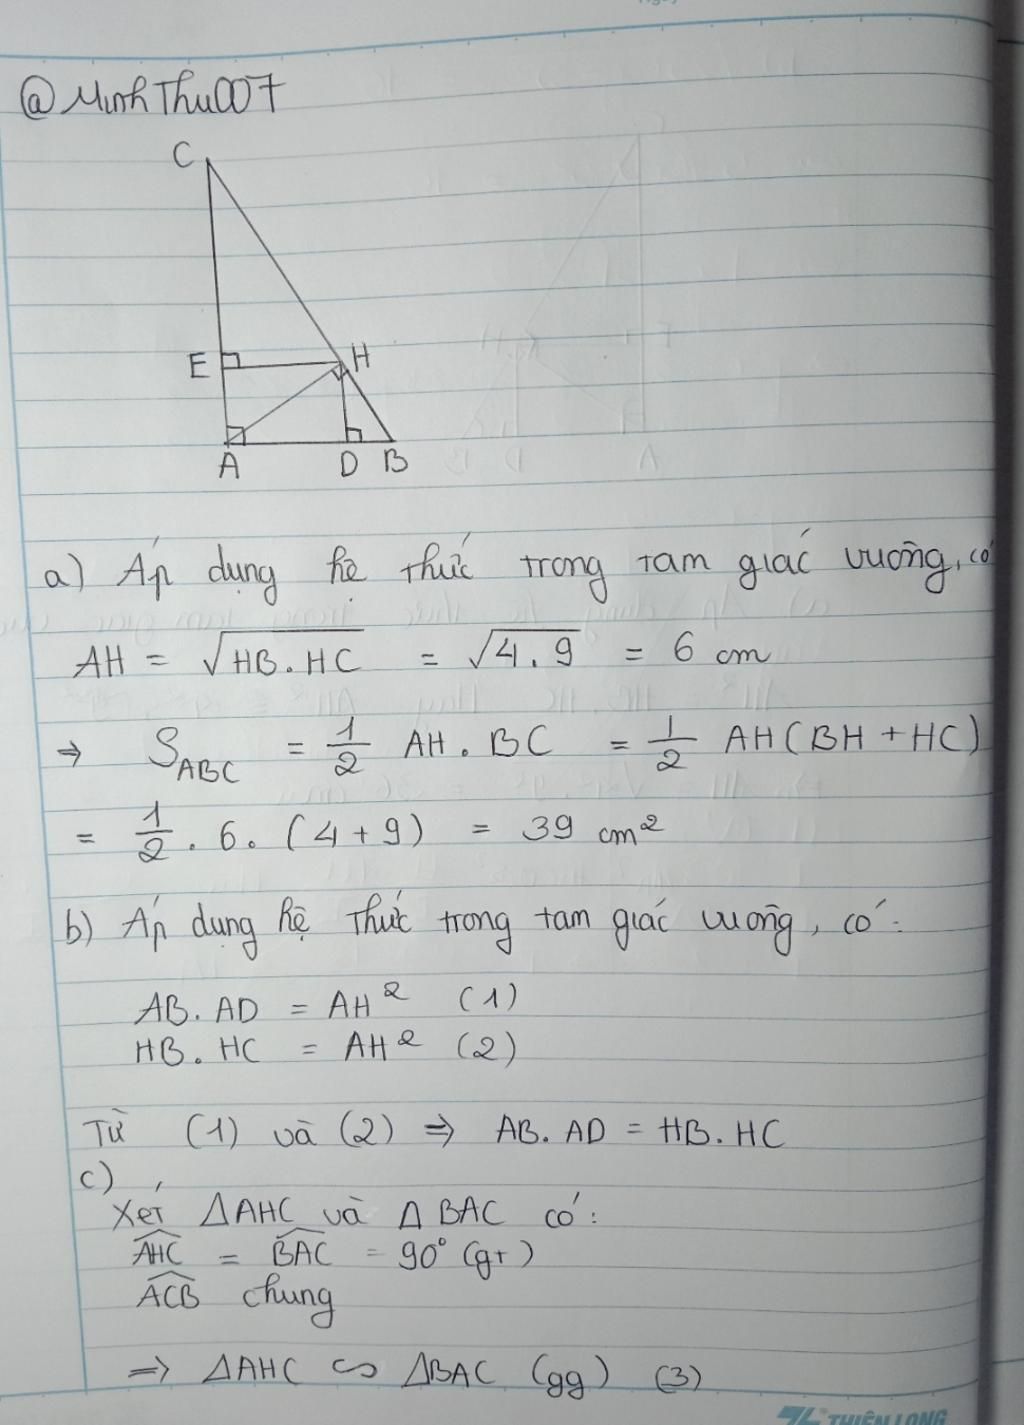 @MinhThu007
C
E
H
A
D
B
a) Áp dụng hệ thức trong tam giác vuông, có
AH = √HB.HC = √4.9 = 6 cm
⇒ S_ABC = 1/2 AH.BC = 1/2 AH(BH + HC)
= 1/2 . 6. (4+9) = 39 cm²
b) Áp dụng hệ thức trong tam giác vuông, có:
AB. AD = AH² (1)
HB. HC = AH² (2)
Từ (1) và (2) ⇒ AB. AD = HB. HC
c)
Xét ΔAHC và ΔBAC có:
AHC = BAC = 90° (gt)
ACB chung
⇒ ΔAHC ∽ ΔBAC (gg) (3)
THIÊN LONG